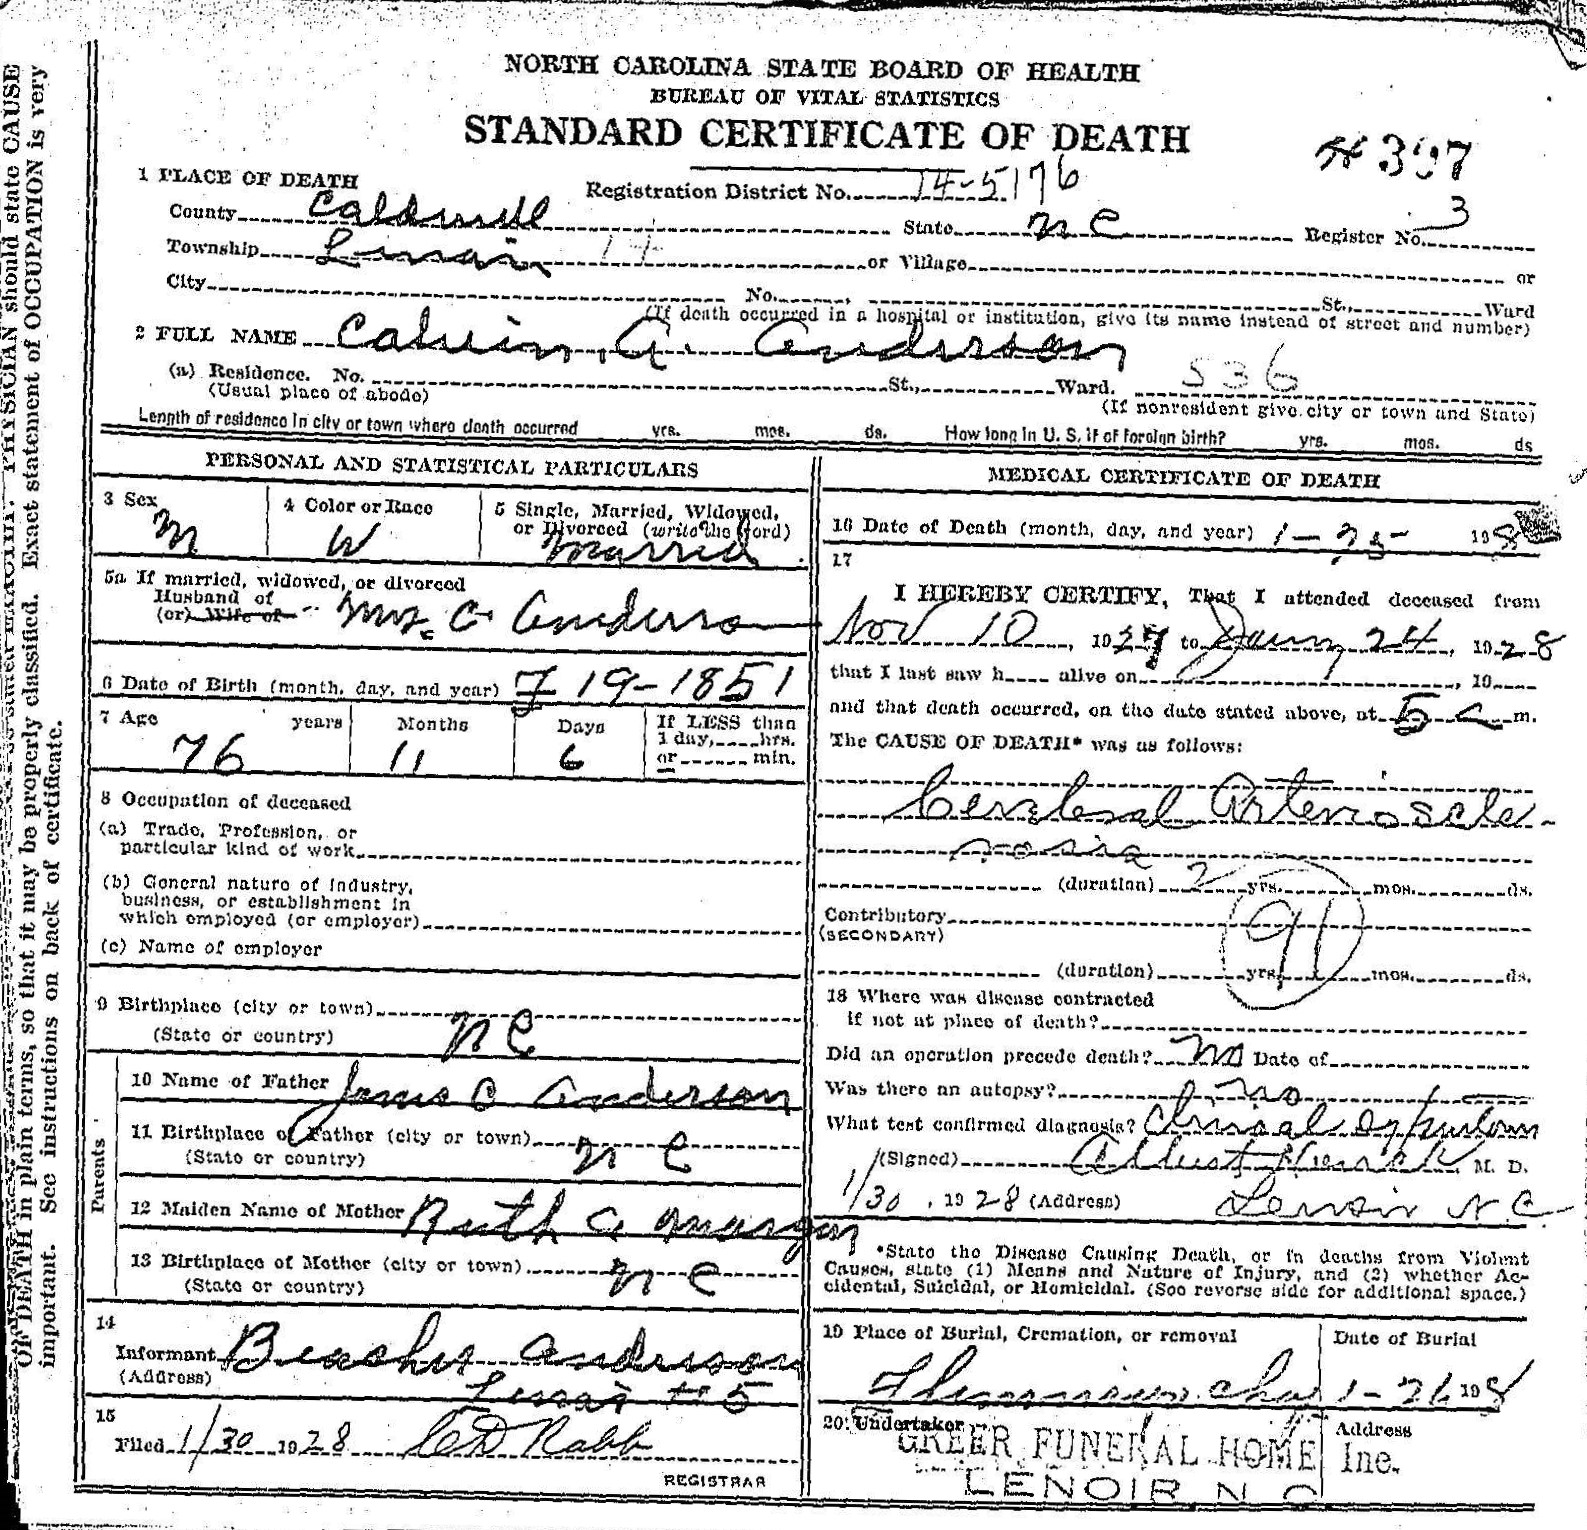 NORTH CAROLINA STATE BOARD OF HEALTH
BUREAU OF VITAL STATISTICS
STANDARD CERTIFICATE OF DEATH
# 397
1 PLACE OF DEATH
Registration District No. 14-5176
County Caldwell State N C Register No. 3
Township Lenoir 14 or Village or
City No. St., Ward
(If death occurred in a hospital or institution, give its name instead of street and number)
2 FULL NAME Calvin. G. Anderson
(a) Residence. No. St., Ward. 536
(Usual place of abode) (If nonresident give city or town and State)
Length of residence in city or town where death occurred yrs. mos. ds. How long in U. S. if of foreign birth? yrs. mos. ds
PERSONAL AND STATISTICAL PARTICULARS
3 Sex M
4 Color or Race W
5 Single, Married, Widowed, or Divorced (write the word) Married
5a If married, widowed, or divorced
Husband of
(or) Wife of Mrs. C Anderson
6 Date of Birth (month, day, and year) 19-1851
7 Age years Months Days If LESS than 1 day, hrs. or min.
76 11 6
8 Occupation of deceased
(a) Trade, Profession, or
particular kind of work
(b) General nature of industry,
business, or establishment in
which employed (or employer)
(c) Name of employer
9 Birthplace (city or town)
(State or country) N C
Parents
10 Name of Father James C Anderson
11 Birthplace of Father (city or town)
(State or country) N C
12 Maiden Name of Mother Ruth C Morgan
13 Birthplace of Mother (city or town)
(State or country) N C
14
Informant Anderson
(Address) Lenoir # 5
15
Filed 1/30 1928 Rabb
REGISTRAR
MEDICAL CERTIFICATE OF DEATH
16 Date of Death (month, day, and year) 1-25- 1928
17
I HEREBY CERTIFY, That I attended deceased from
Nov 10, 1927 to Jany 24, 1928
that I last saw h alive on , 19
and that death occurred, on the date stated above, at 5 a m.
The CAUSE OF DEATH* was as follows:
Cerebral Arterioscle-
rosis
(duration) 2 yrs. mos. ds.
Contributory
(SECONDARY)
91
(duration) yrs. mos. ds.
18 Where was disease contracted
if not at place of death?
Did an operation precede death? No Date of
Was there an autopsy? no
What test confirmed diagnosis? Clinical Symptoms
(Signed) Albert M. D.
1/30, 1928 (Address) Lenoir N. C.
*State the Disease Causing Death, or in deaths from Violent
Causes, state (1) Means and Nature of Injury, and (2) whether Ac-
cidental, Suicidal, or Homicidal. (See reverse side for additional space.)
19 Place of Burial, Cremation, or removal
Date of Burial
1-26 1928
20 Undertaker
Address
GREER FUNERAL HOME Inc.
LENOIR, N C
OF DEATH in plain terms, so that it may be properly classified. Exact statement of OCCUPATION is very
important. See instructions on back of certificate.
PHYSICIAN should state CAUSE